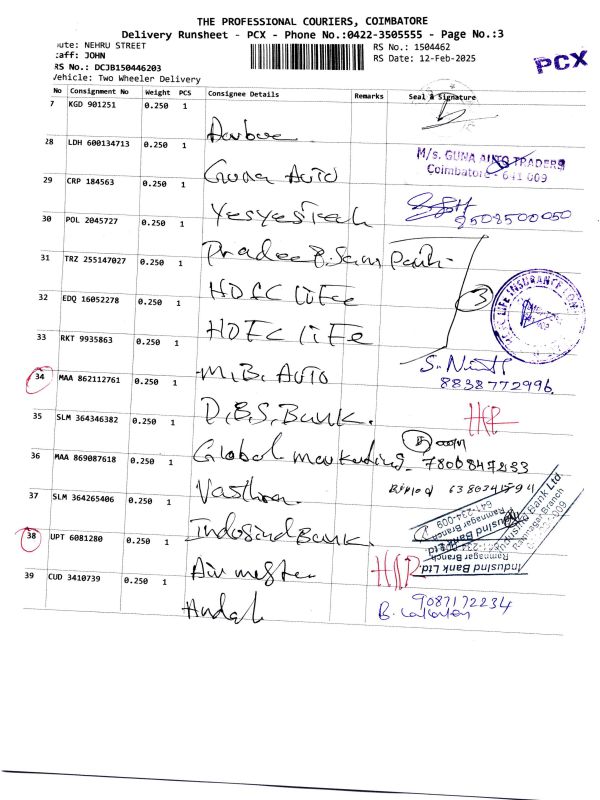 THE PROFESSIONAL COURIERS, COIMBATORE
Delivery Runsheet - PCX - Phone No.:0422-3505555 - Page No.:3
oute: NEHRU STREET
RS No.: 1504462
PCX
taff: JOHN
RS Date: 12-Feb-2025
RS No.: DCJB150446203
Vehicle: Two Wheeler Delivery
No Consignment No Weight PCS Consignee Details Remarks Seal & Signature
7 KGD 901251 0.250 1
28 LDH 600134713 0.250 1
M/s. GUNA AUTO TRADERS
Coimbatore - 641 009
Guna Auto
29 CRP 184563 0.250 1
Yesyestech
9508500050
30 POL 2045727 0.250 1
31 TRZ 255147027 0.250 1
HDFC LIFE
3
32 EDQ 16052278 0.250 1
HDFC LIFE
33 RKT 9935863 0.250 1
8838772996
34 MAA 862112761 0.250 1
M.B. AUTO
35 SLM 364346382 0.250 1
D.B.S. Bank.
36 MAA 869087618 0.250 1
Global marketing
37 SLM 364265406 0.250 1
Vasthra
38 UPT 6081280 0.250 1
Indusind Bank.
IndusInd Bank Ltd
Ramnagar Branch
39 CUD 3410739 0.250 1
9087172234